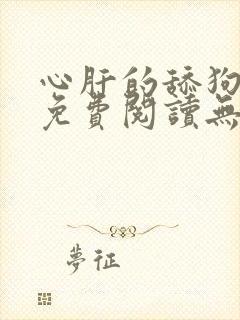 心肝的舔狗
免費閱讀無
夢征